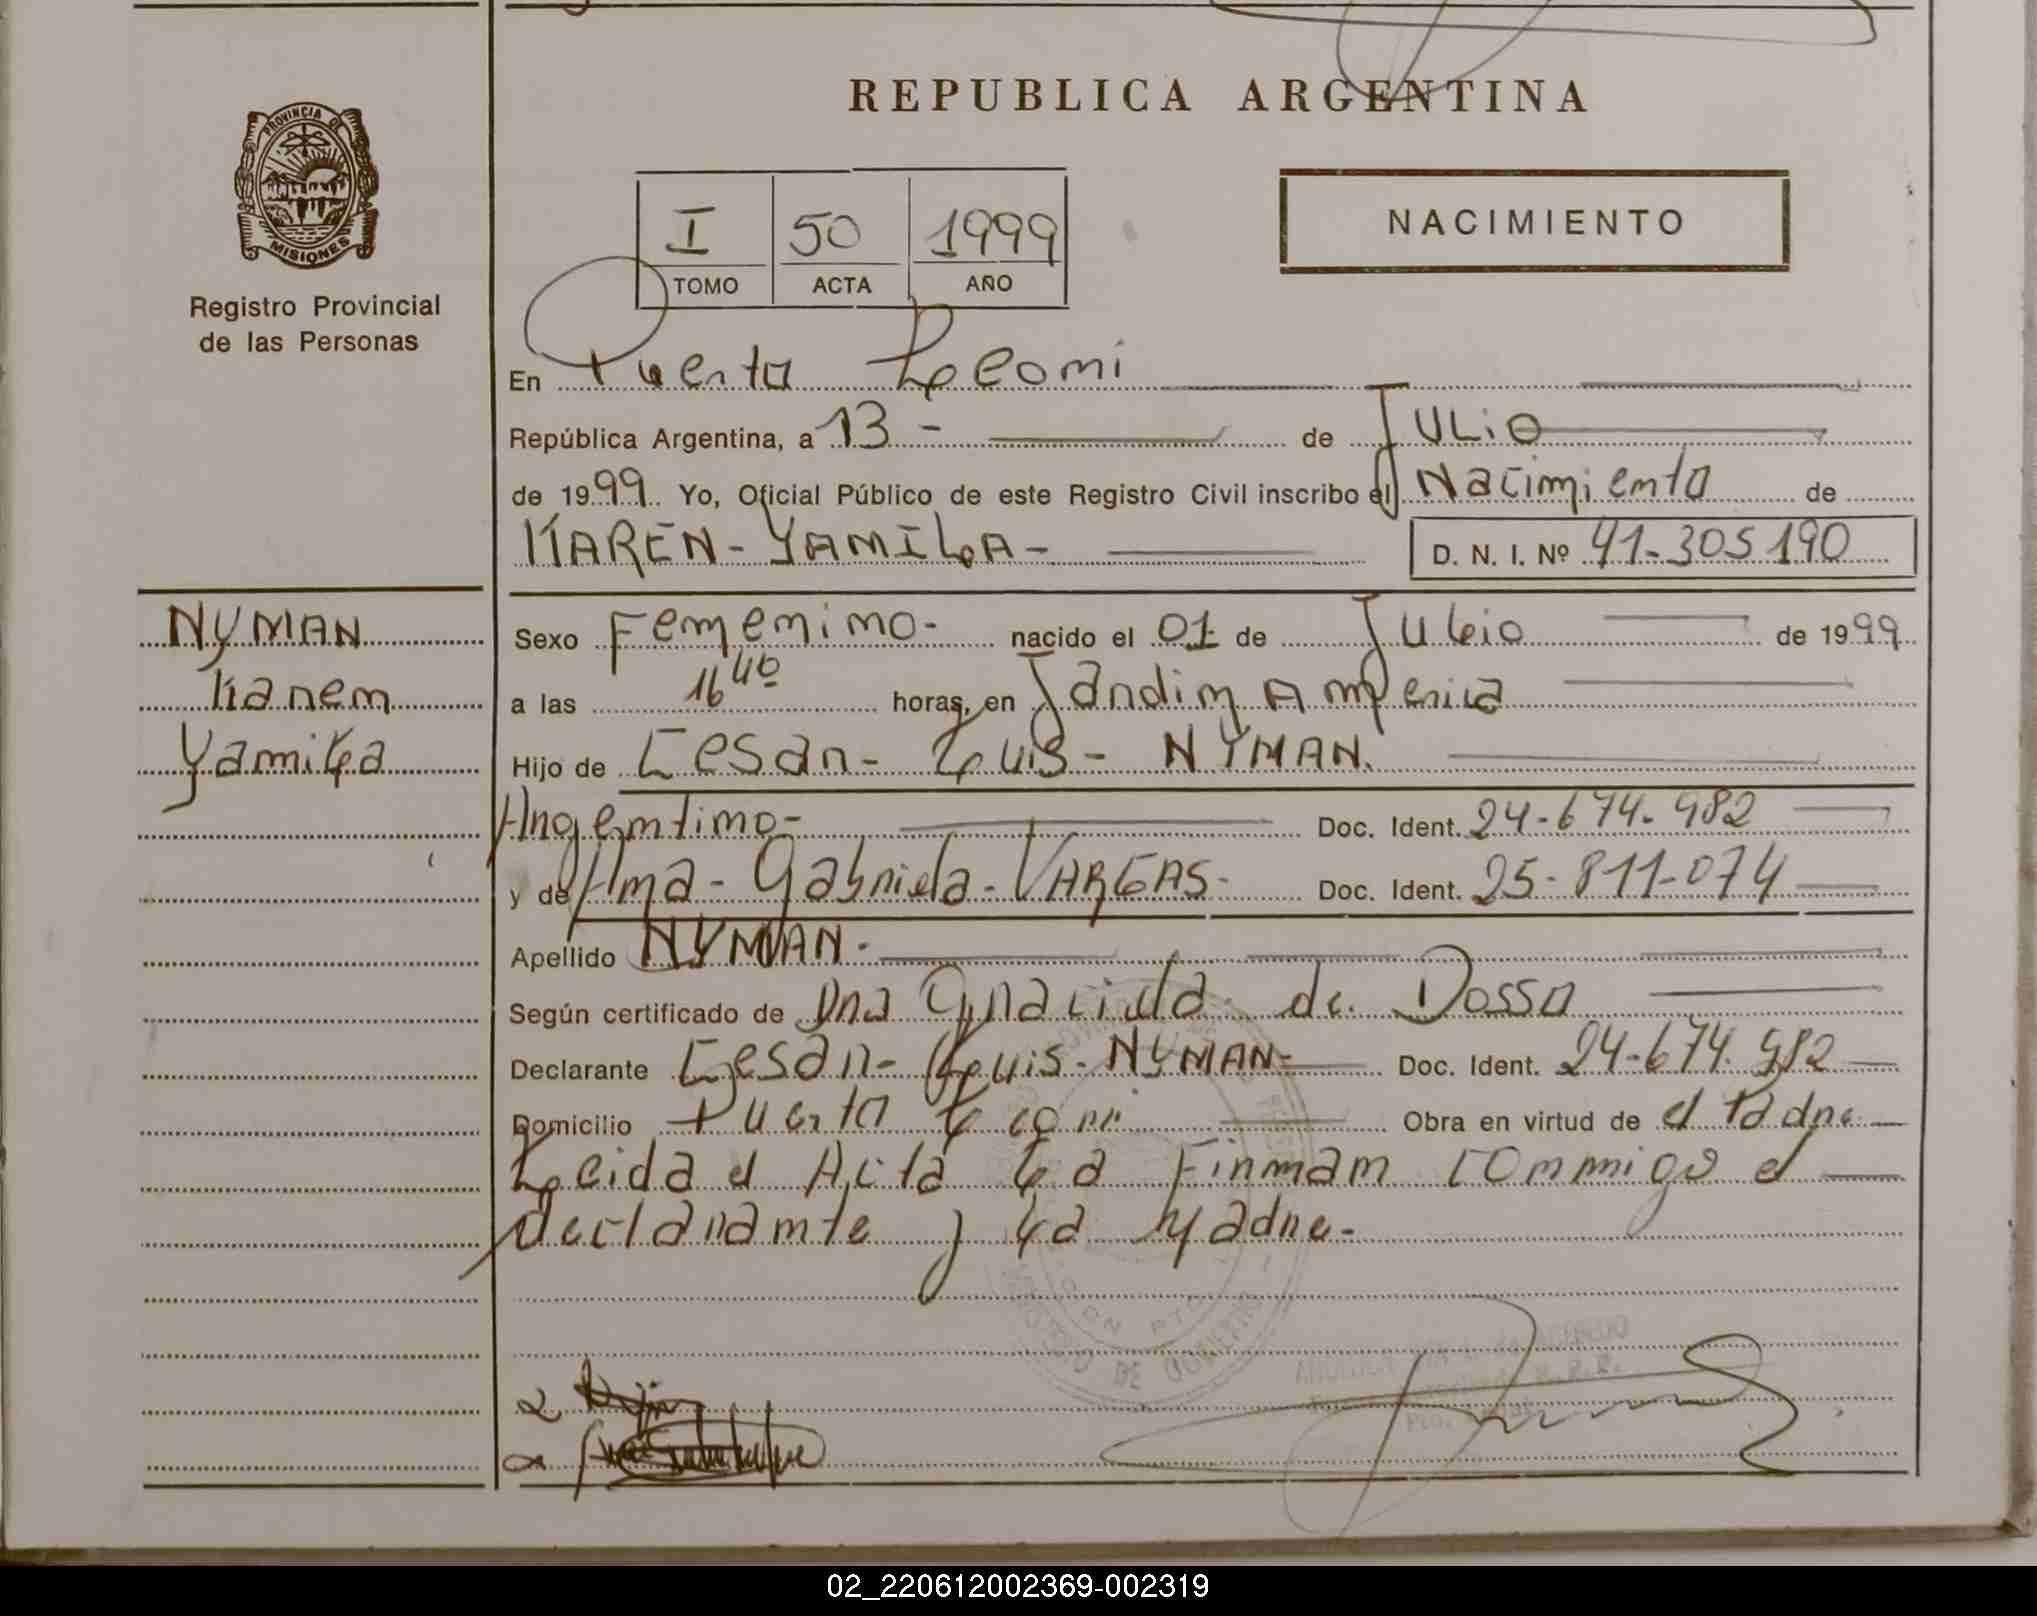 REPUBLICA ARGENTINA
PROVINCIA DE
MISIONES
Registro Provincial
de las Personas
I 50 1999
TOMO ACTA AÑO
NACIMIENTO
En Puerto Leoni
República Argentina, a 13 - de Julio
de 1999 Yo, Oficial Público de este Registro Civil inscribo el Nacimiento de
KAREN - YAMILA - D. N. I. Nº 41-305190
NYMAN
Karen
Yamila
Sexo Femenino - nacido el 01 de Julio de 1999
a las 16 40 horas, en Jardin America
Hijo de Cesar - Luis - NYMAN.
Argentino - Doc. Ident. 24-674-982
y de Ana - Gabriela - VARGAS - Doc. Ident. 25-811-074
Apellido NYMAN -
Según certificado de Dna Graciela de Dosso
Declarante Cesar - Luis - NYMAN - Doc. Ident. 24-674.982
Domicilio Puerto Leoni Obra en virtud de el Padre
Leida el Acta La Firman conmigo el
declarante y La Madre -
02_220612002369-002319